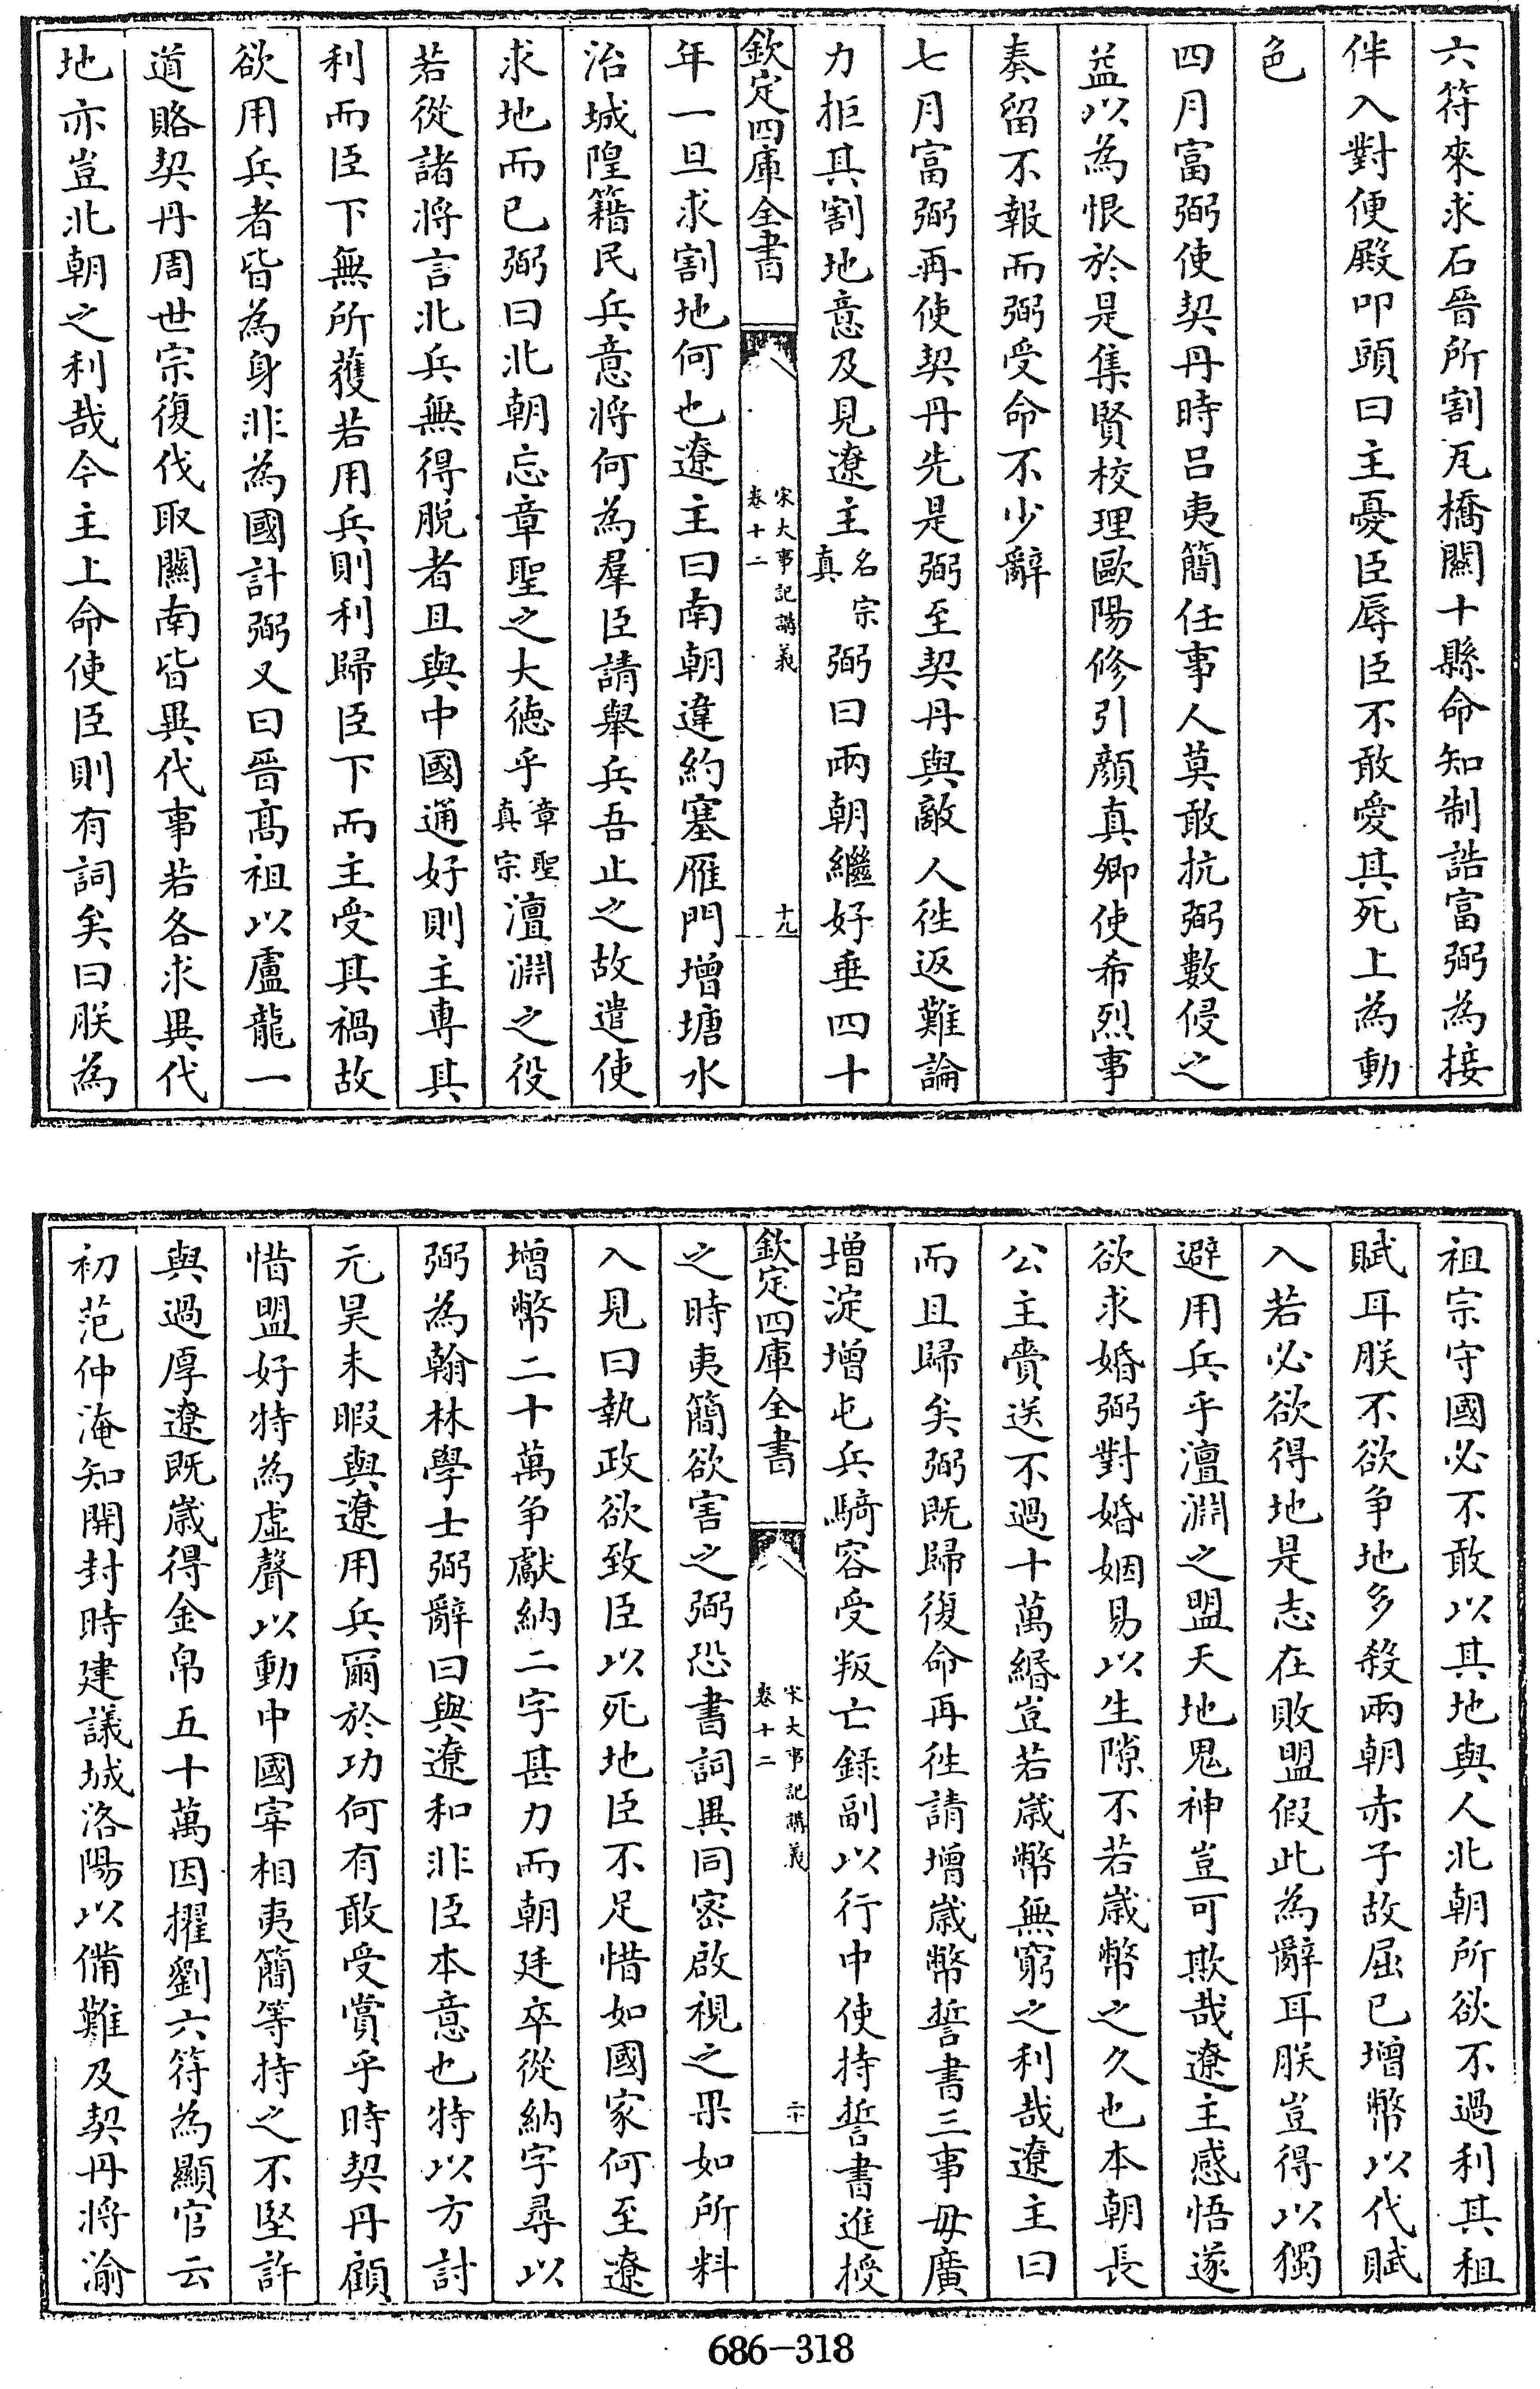 六符來求石晉所割瓦橋關十縣命知制誥富弼為接
伴入對便殿叩頭曰主憂臣辱臣不敢愛其死上為動
色
四月富弼使契丹時呂夷簡任事人莫敢抗弼數侵之
益以為恨於是集賢校理歐陽修引顔真卿使希烈事
奏留不報而弼受命不少辭
七月富弼再使契丹先是弼至契丹與敵人徃返難論
力拒其割地意及見遼主名宗真弼曰兩朝繼好垂四十
欽定四庫全書
宋大事記講義
卷十二
十九
年一旦求割地何也遼主曰南朝違約塞雁門增塘水
治城隍籍民兵意將何為羣臣請舉兵吾止之故遣使
求地而已弼曰北朝忘章聖之大徳乎章聖真宗澶淵之役
若從諸將言北兵無得脫者且與中國通好則主專其
利而臣下無所獲若用兵則利歸臣下而主受其禍故
欲用兵者皆為身非為國計弼又曰晉髙祖以盧龍一
道賂契丹周世宗復伐取關南皆異代事若各求異代
地亦豈北朝之利哉今主上命使臣則有詞矣曰朕為
祖宗守國必不敢以其地與人北朝所欲不過利其租
賦耳朕不欲爭地多殺兩朝赤子故屈已增幣以代賦
入若必欲得地是志在敗盟假此為辭耳朕豈得以獨
避用兵乎澶淵之盟天地鬼神豈可欺哉遼主感悟遂
欲求婚弼對婚姻易以生隙不若歲幣之久也本朝長
公主賫送不過十萬緡豈若歲幣無窮之利哉遼主曰
而且歸矣弼既歸復命再徃請增歲幣誓書三事毋廣
増淀增屯兵騎容受叛亡録副以行中使持誓書進授
欽定四庫全書
宋大事記講義
卷十二
二十
之時夷簡欲害之弼恐書詞異同密啟視之果如所料
入見曰執政欲致臣以死地臣不足惜如國家何至遼
增幣二十萬爭獻納二字甚力而朝廷卒從納字尋以
弼為翰林學士弼辭曰與遼和非臣本意也特以方討
元昊未暇與遼用兵爾於功何有敢受賞乎時契丹顧
惜盟好特為虛聲以動中國宰相夷簡等持之不堅許
與過厚遼既歲得金帛五十萬因擢劉六符為顯官云
初范仲淹知開封時建議城洛陽以備難及契丹將渝
686-318